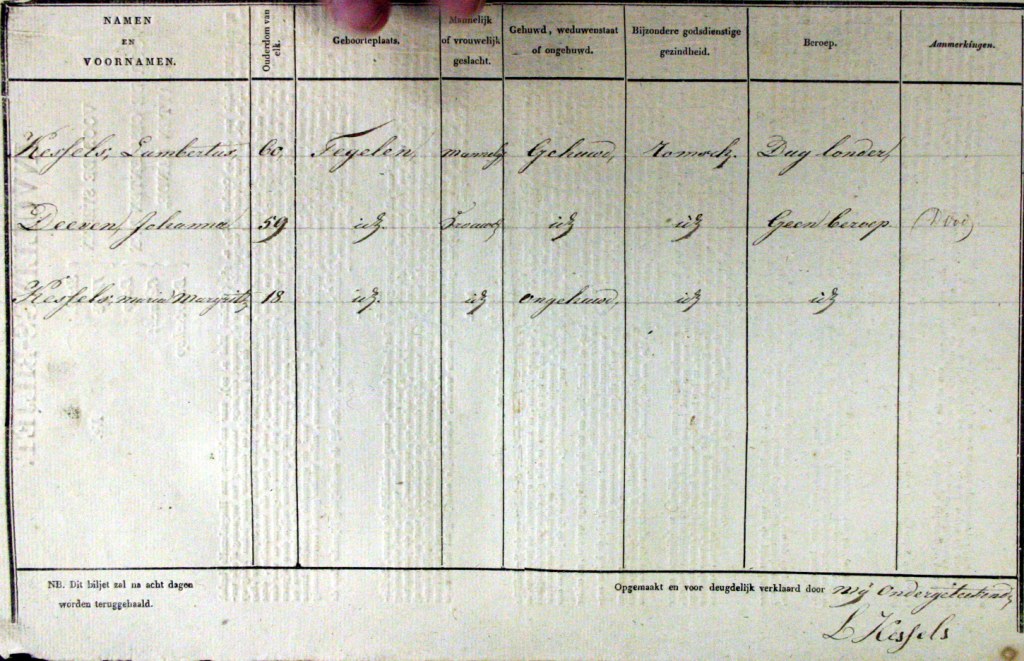 NAMEN EN VOORNAMEN. Ouderdom van elk. Geboorteplaats. Mannelijk of vrouwelijk geslacht. Gehuwd, weduwenstaat of ongehuwd. Bijzondere godsdienstige gezindheid. Beroep. Aanmerkingen.
Kessels, Lambertus, 60, Tegelen, mannelij Gehuwd, Romsch. Dag looner,
Deeven, Johanna 59 id. vrouwel id id Geen beroep
Kessels, maria Margrita, 18 id. id ongehuwd, id id
NB. Dit biljet zal na acht dagen
worden teruggehaald.
Opgemaakt en voor deugdelijk verklaard door mij ondergetekend
L Kessels